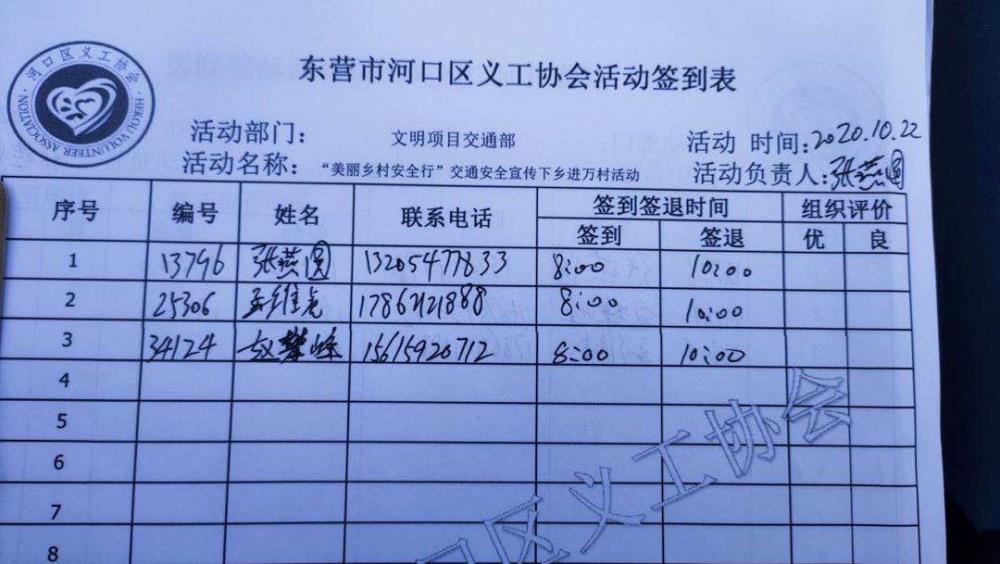 东营市河口区义工协会活动签到表
河口区义工协会
HEKOU VOLUNTEER ASSOCIATION
活动部门： 文明项目交通部 活动 时间：2020.10.22
活动名称： “美丽乡村安全行”交通安全宣传下乡进万村活动 活动负责人：张燕圆
序号 编号 姓名 联系电话 签到签退时间 组织评价
签到 签退 优 良
1 13796 张燕圆 13205477833 8:00 10:00
2 25306 8:00 10:00
3 34124 赵攀峰 15615920712 8:00 10:00
4
5
6
7
8
口区义工协会